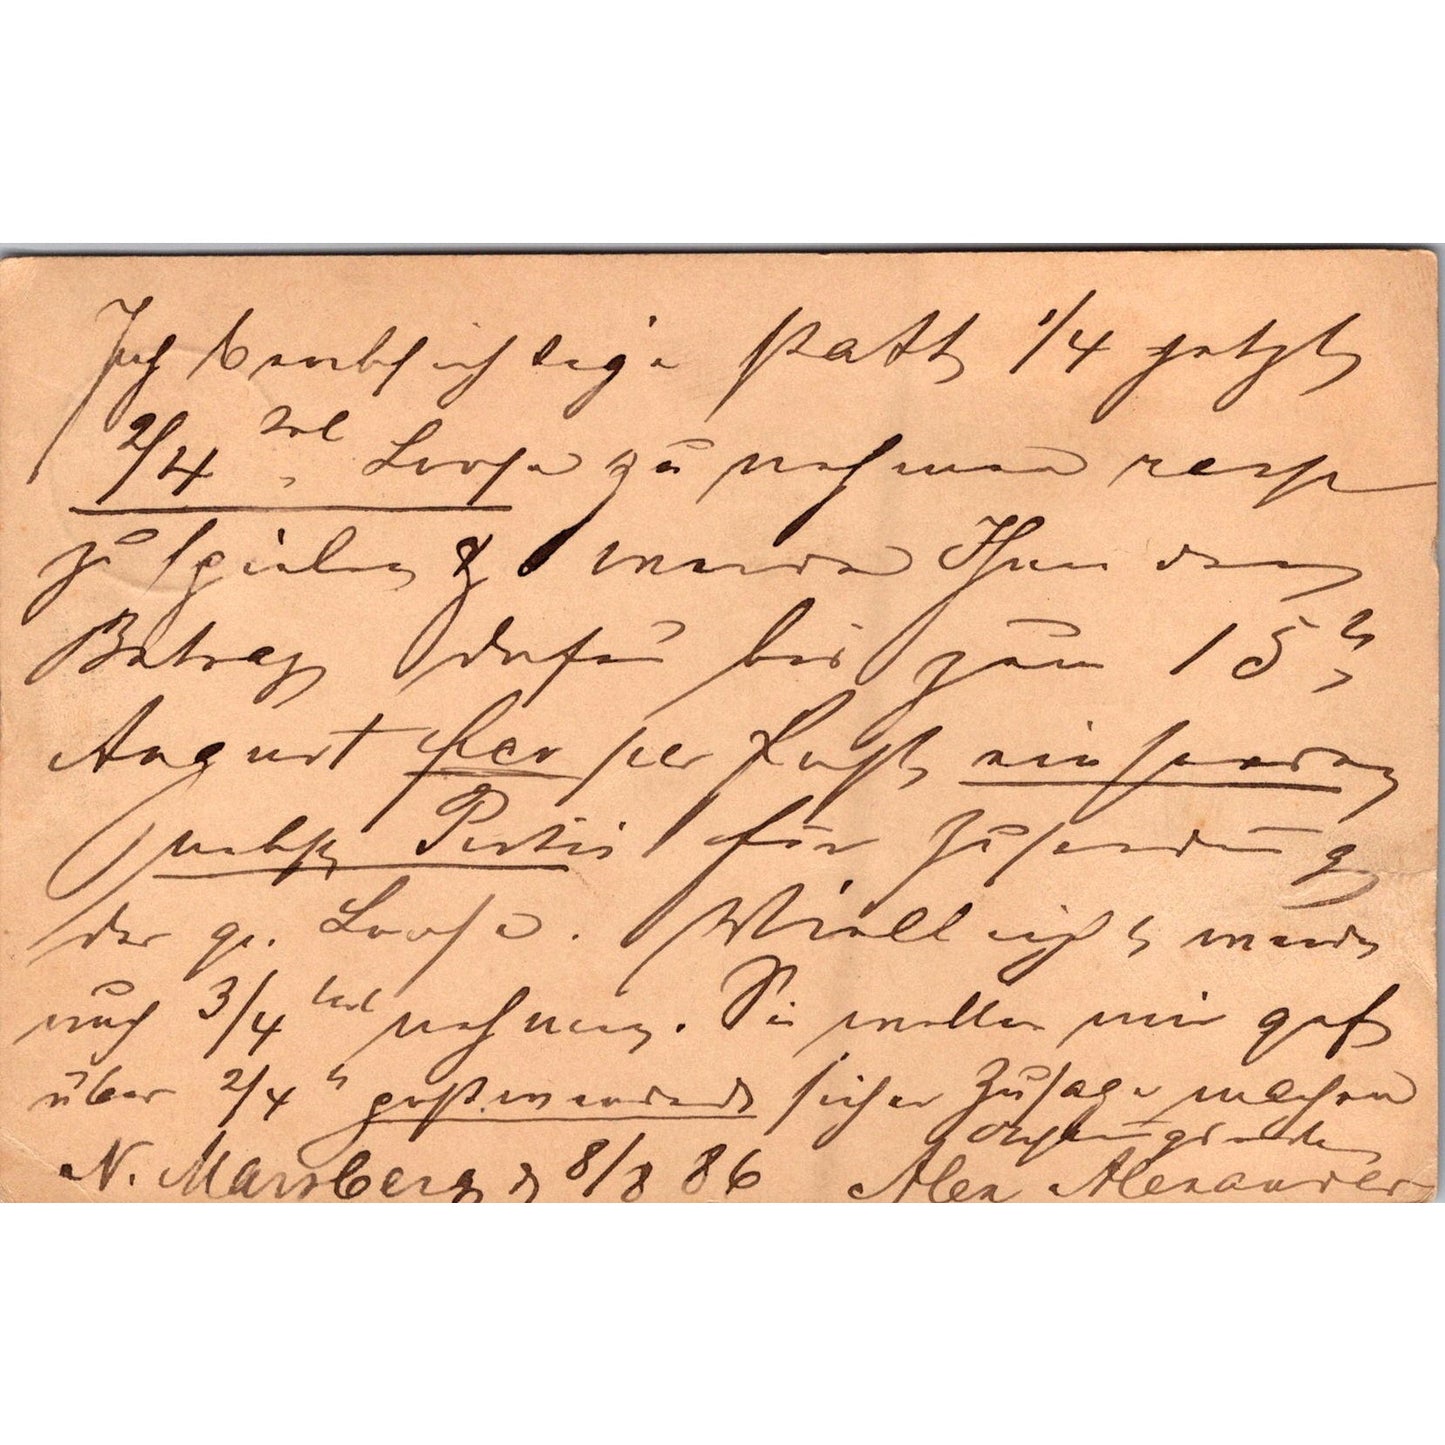 Ich beabsichtige statt 1/4 jetzt
2/4 Loose zu nehmen resp
zu spielen & werde Ihnen den
Betrag dafür bis zum 15
August per Post einsenden
nebst Porto für Zusendung
der q. Loose. Vielleicht werde
auch 3/4 nehmen. Sie wollen mir gefl
über 2/4 postwendend sichere Zusage machen
Achtungsvoll
N. Marsberg d 8/8 86 Alex Alexander